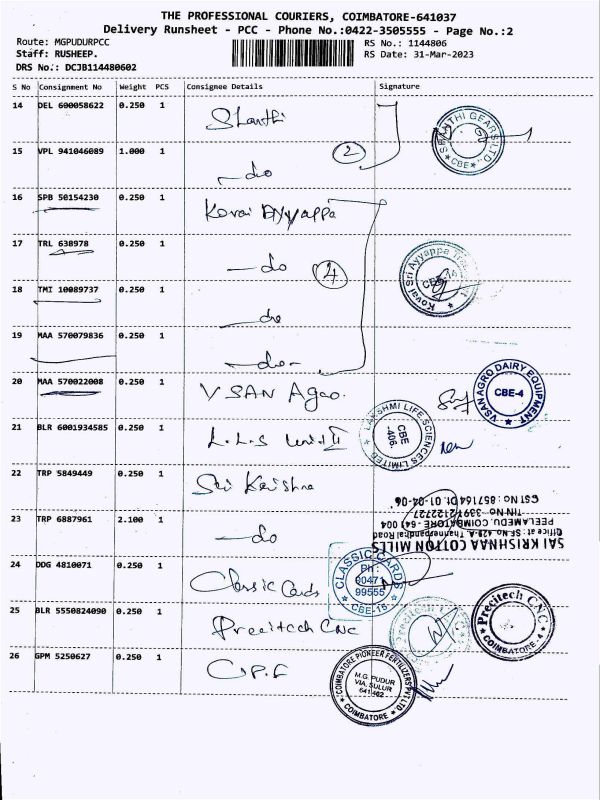 THE PROFESSIONAL COURIERS, COIMBATORE-641037
Delivery Runsheet - PCC - Phone No.:0422-3505555 - Page No.:2
Route: MGPUDURPCC
RS No.: 1144806
Staff: RUSHEEP.
RS Date: 31-Mar-2023
DRS No.: DCJB114480602
S No Consignment No Weight PCS Consignee Details Signature
14 DEL 600058622 0.250 1 Shanthi
SHANTHI GEARS LTD. CBE
15 VPL 941046089 1.000 1 -do 2
16 SPB 50154230 0.250 1 Kovai Ayyappa
17 TRL 638978 0.250 1 -do 4
Kovai Sri Ayyappa
18 TMI 10089737 0.250 1 -do
19 MAA 570079836 0.250 1 -do-
20 MAA 570022008 0.250 1 VSAN Agro.
VSAN AGRO DAIRY EQUIPMENT CBE-4
21 BLR 6001934585 0.250 1 L.L.S Unit II
LAKSHMI LIFE SCIENCES LIMITED CBE -406.
22 TRP 5849449 0.250 1 Sri Krishna
23 TRP 6887961 2.100 1 -do
SAI KRISHNAA COTTON MILLS
Office at: SF No. 428-A, Thanneerpandral Road
PEELAMEDU, COIMBATORE- 641 004
TIN No: 33912122727
CST No: 857164 Dt. 01-04-06
24 DDG 4810071 0.250 1 Classic Cards
CLASSIC CARDS Ph: 90471 99555 CBE-15
25 BLR 5550824090 0.250 1 Precitech CNC
Precitech CNC COIMBATORE-4
26 GPM 5250627 0.250 1 C.P.F
COIMBATORE PIONEER FERTILIZERS PVT LTD. M.G. PUDUR VIA, SULUR 641 402 COIMBATORE